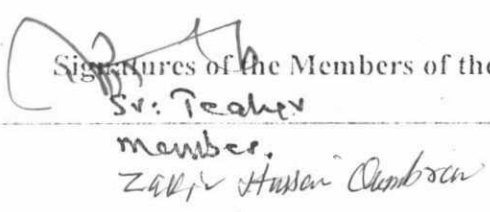 Signatures of the Members of the
Sr: Teaher
Member.
Zakir Hussain